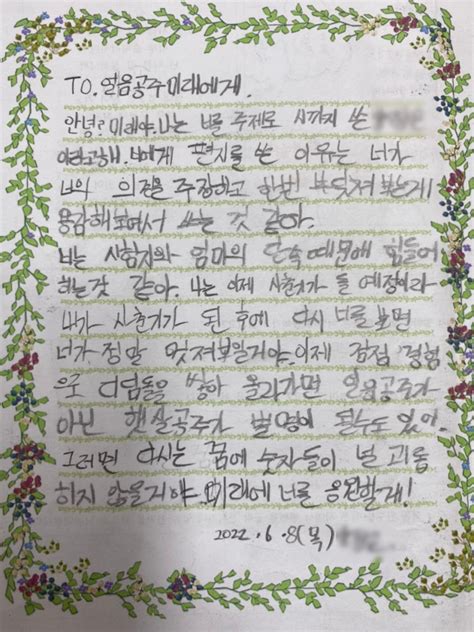 TO. 얼음공주 미래에게.
안녕? 미래야. 나는 너를 주제로 시까지 쓴
라고해. 너에게 편지를 쓴 이유는 너가
너의 의견을 주장하고 한번 부딪쳐 보는게
용감해보여서 쓰는 것 같아.
너는 시험지와 엄마의 단속 때문에 힘들어
하는것 같아. 나는 이제 사춘기가 들 예정이라
내가 사춘기가 된 후에 다시 너를 보면
너가 정말 멋져보일거야. 이제 점점 경험
으로 디딤돌을 쌓아 올라가면 얼음공주가
아닌 햇살공주가 별명이 될수도 있어.
그러면 다시는 꿈에 숫자들이 널 괴롭
히지 않을거야. 미래에 너를 응원할게!
2022. 6. 8(목)